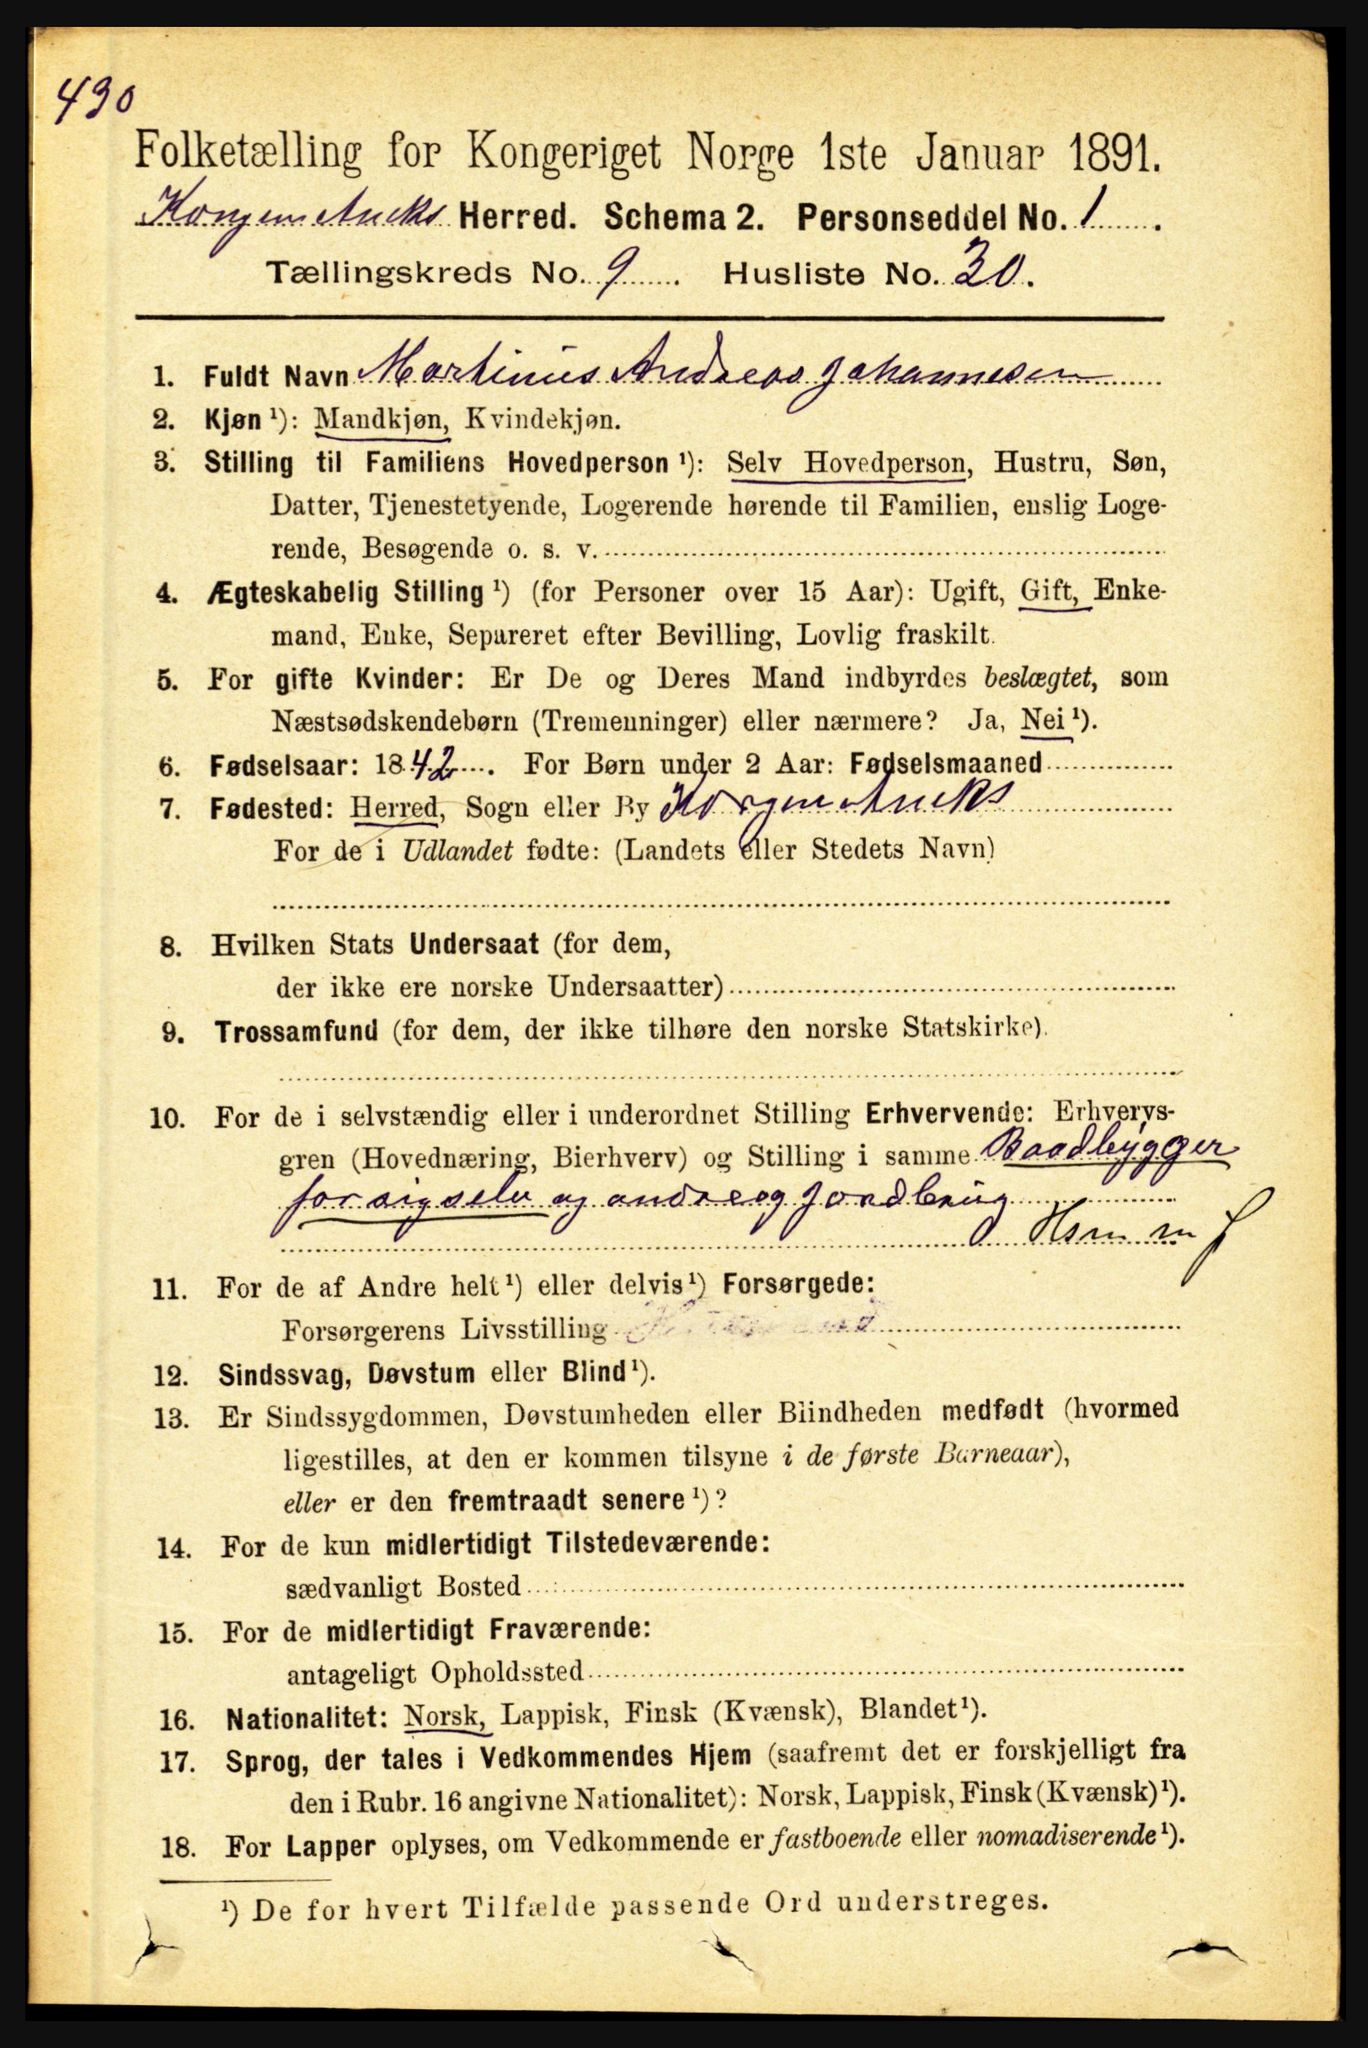 430
Folketælling for Kongeriget Norge 1ste Januar 1891.
Korgen Aneks Herred. Schema 2. Personseddel No. 1.
Tællingskreds No. 9. Husliste No. 30.
1. Fuldt Navn Martinius Andreas Johannesen
2. Kjøn ¹): Mandkjøn, Kvindekjøn.
3. Stilling til Familiens Hovedperson ¹): Selv Hovedperson, Hustru, Søn,
Datter, Tjenestetyende, Logerende hørende til Familien, enslig Loge-
rende, Besøgende o. s. v.
4. Ægteskabelig Stilling ¹) (for Personer over 15 Aar): Ugift, Gift, Enke-
mand, Enke, Separeret efter Bevilling, Lovlig fraskilt.
5. For gifte Kvinder: Er De og Deres Mand indbyrdes beslægtet, som
Næstsødskendebørn (Tremenninger) eller nærmere? Ja, Nei ¹).
6. Fødselsaar: 1842. For Børn under 2 Aar: Fødselsmaaned
7. Fødested: Herred, Sogn eller By Korgen Aneks
For de i Udlandet fødte: (Landets eller Stedets Navn)
8. Hvilken Stats Undersaat (for dem,
der ikke ere norske Undersaatter)
9. Trossamfund (for dem, der ikke tilhøre den norske Statskirke).
10. For de i selvstændig eller i underordnet Stilling Erhvervende: Erhvervs-
gren (Hovednæring, Bierhverv) og Stilling i samme Baadbygger
for sig selv og andre og Jordbrug
Hsm m f
11. For de af Andre helt ¹) eller delvis ¹) Forsørgede:
Forsørgerens Livsstilling
12. Sindssvag, Døvstum eller Blind ¹).
13. Er Sindssygdommen, Døvstumheden eller Blindheden medfødt (hvormed
ligestilles, at den er kommen tilsyne i de første Barneaar),
eller er den fremtraadt senere ¹)?
14. For de kun midlertidigt Tilstedeværende:
sædvanligt Bosted
15. For de midlertidigt Fraværende:
antageligt Opholdssted
16. Nationalitet: Norsk, Lappisk, Finsk (Kvænsk), Blandet ¹).
17. Sprog, der tales i Vedkommendes Hjem (saafremt det er forskjelligt fra
den i Rubr. 16 angivne Nationalitet): Norsk, Lappisk, Finsk (Kvænsk) ¹).
18. For Lapper oplyses, om Vedkommende er fastboende eller nomadiserende ¹).
¹) De for hvert Tilfælde passende Ord understreges.